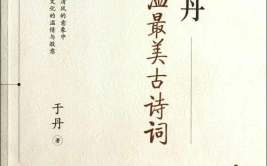 丹
温最美古诗词
清风的意象中
文化的温情与敬意
于丹 著